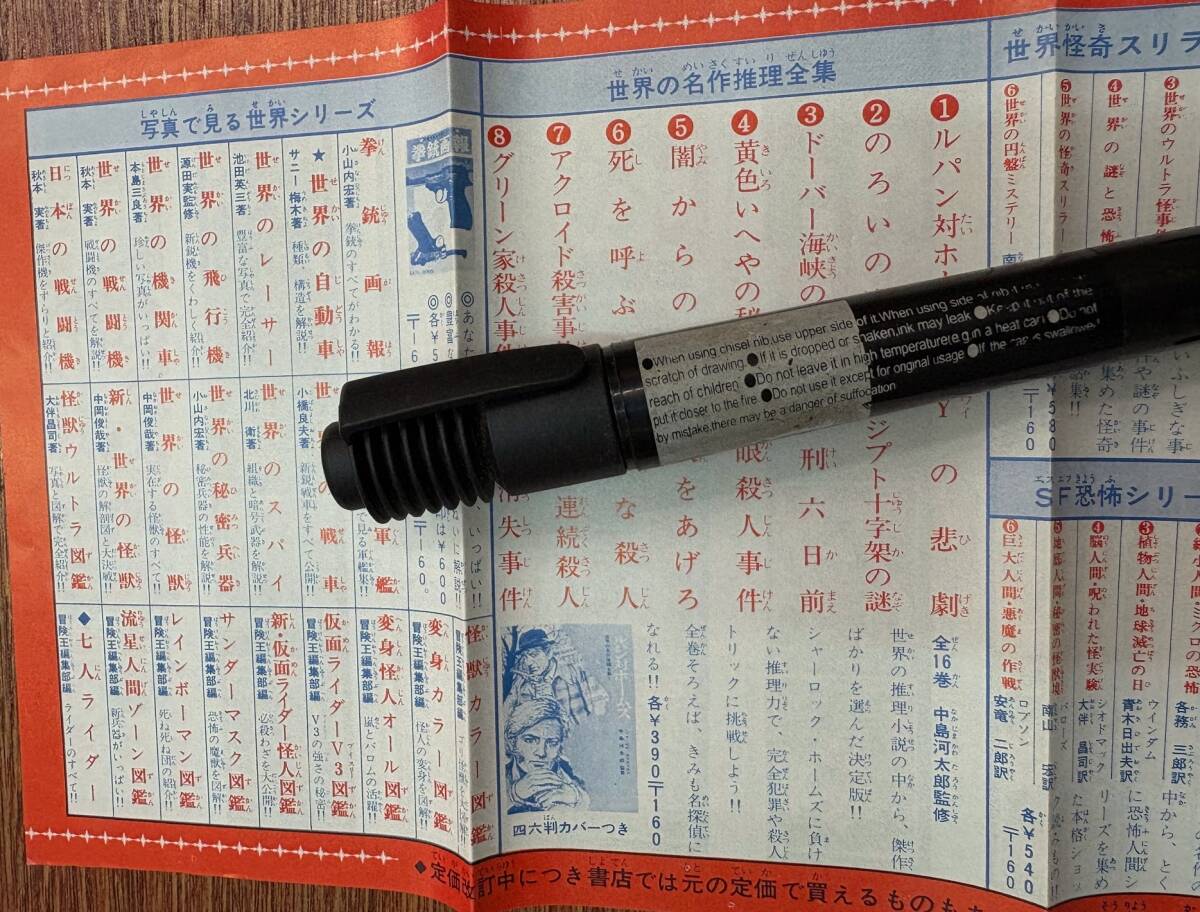 世界怪奇スリラ
❸世界のウルトラ怪事
❹世界の謎と恐怖
❺世界の怪奇スリラ
❻世界の円盤ミステリー 南
いふしぎな事
件や謎の事件
を集めた怪奇
¥580
〒160
SF恐怖シリー
❸植物人間・地球滅亡の日
ウインダム
青木日出夫訳
❹脳人間・呪われた怪実験
シオドマック
大伴 昌司訳
❻巨大人間・悪魔の作戦
ロブソン
安竜 二郎訳
各務 三郎訳
中から、とく
に恐怖人間シ
リーズを集め
た本格ショッ
各¥540
〒160
世界の名作推理全集
❶ルパン対ホ
❷のろいの
❸ドーバー海峡の
❹黄色いへやの秘
❺闇からの
❻死を呼ぶ
❼アクロイド殺害事
❽グリーン家殺人事件
Yの悲劇
ジプト十字架の謎
刑六日前
眼殺人事件
をあげろ
な殺人
連続殺人
消失事件
全16巻 中島河太郎監修
世界の推理小説の中から、傑作
ばかりを選んだ決定版!!
シャーロック ホームズに負け
ない推理力で、完全犯罪や殺人
トリックに挑戦しよう!!
全巻そろえば、きみも名探偵に
なれる!! 各¥390〒160
四六判カバーつき
写真で見る世界シリーズ
拳銃画報
拳銃画報
小山内宏著 拳銃のすべてがわかる!!
★世界の自動車
サニー梅木著 種類、構造を解説!!
世界のレーサー
池田英三著 豊富な写真で完全紹介!!
世界の飛行機
源田実監修 新鋭機をくわしく紹介!!
世界の機関車
本島三良著 珍しい写真がいっぱい!!
世界の戦闘機
秋本 実著 戦闘機のすべてを解説!!
日本の戦闘機
秋本 実著 傑作機をずらりと紹介!!
◎あなた
◎豊富な
◎各¥5
〒16
いっぱい!!
いに解説!!
は¥600
〒160。
軍艦
で見る軍艦集!!
世
の戦車
小橋良夫著 新鋭戦車をすべて公開!!
世界のスパイ
北川 衛著 組織と暗号武器を解説!!
世界の秘密兵器
小山内宏著 秘密兵器の性能を解説!!
世界の怪獣
中岡俊哉著 実在する怪獣のすべて!!
新・世界の怪獣
中岡俊哉著 怪獣の解剖図と大決戦!!
怪獣ウルトラ図鑑
大伴昌司著 写真と図解で完全紹介!!
怪獣カラー図鑑
冒険王編集部編
変身カラー図鑑
冒険王編集部編 怪人の変身を図解!!
変身怪人オール図鑑
冒険王編集部編 嵐とバロムの活躍!!
仮面ライダーV3図鑑
冒険王編集部編 V3の強さの秘密!!
新・仮面ライダー怪人図鑑
冒険王編集部編 必殺わざを大公開!!
サンダーマスク図鑑
冒険王編集部編 恐怖の魔獣を図解!!
レインボーマン図鑑
冒険王編集部編 死ね死ね団の紹介!!
流星人間ゾーン図鑑
冒険王編集部編 新兵器がいっぱい!!
◆七人ライダー
冒険王編集部編 ライダーのすべて!!
◆定価改訂中につき書店では元の定価で買えるものもあ
●When using chisel nib,use upper side of it.When using side of nib
scratch of drawing.●If it is dropped or shaken,ink may leak ●Keep out of the
reach of children ●Do not leave it in high temperature(e.g.in a heat car) ●Do not
put it closer to the fire ●Do not use it except for original usage ●If the cap is swallowed
by mistake,there may be a danger of suffocation